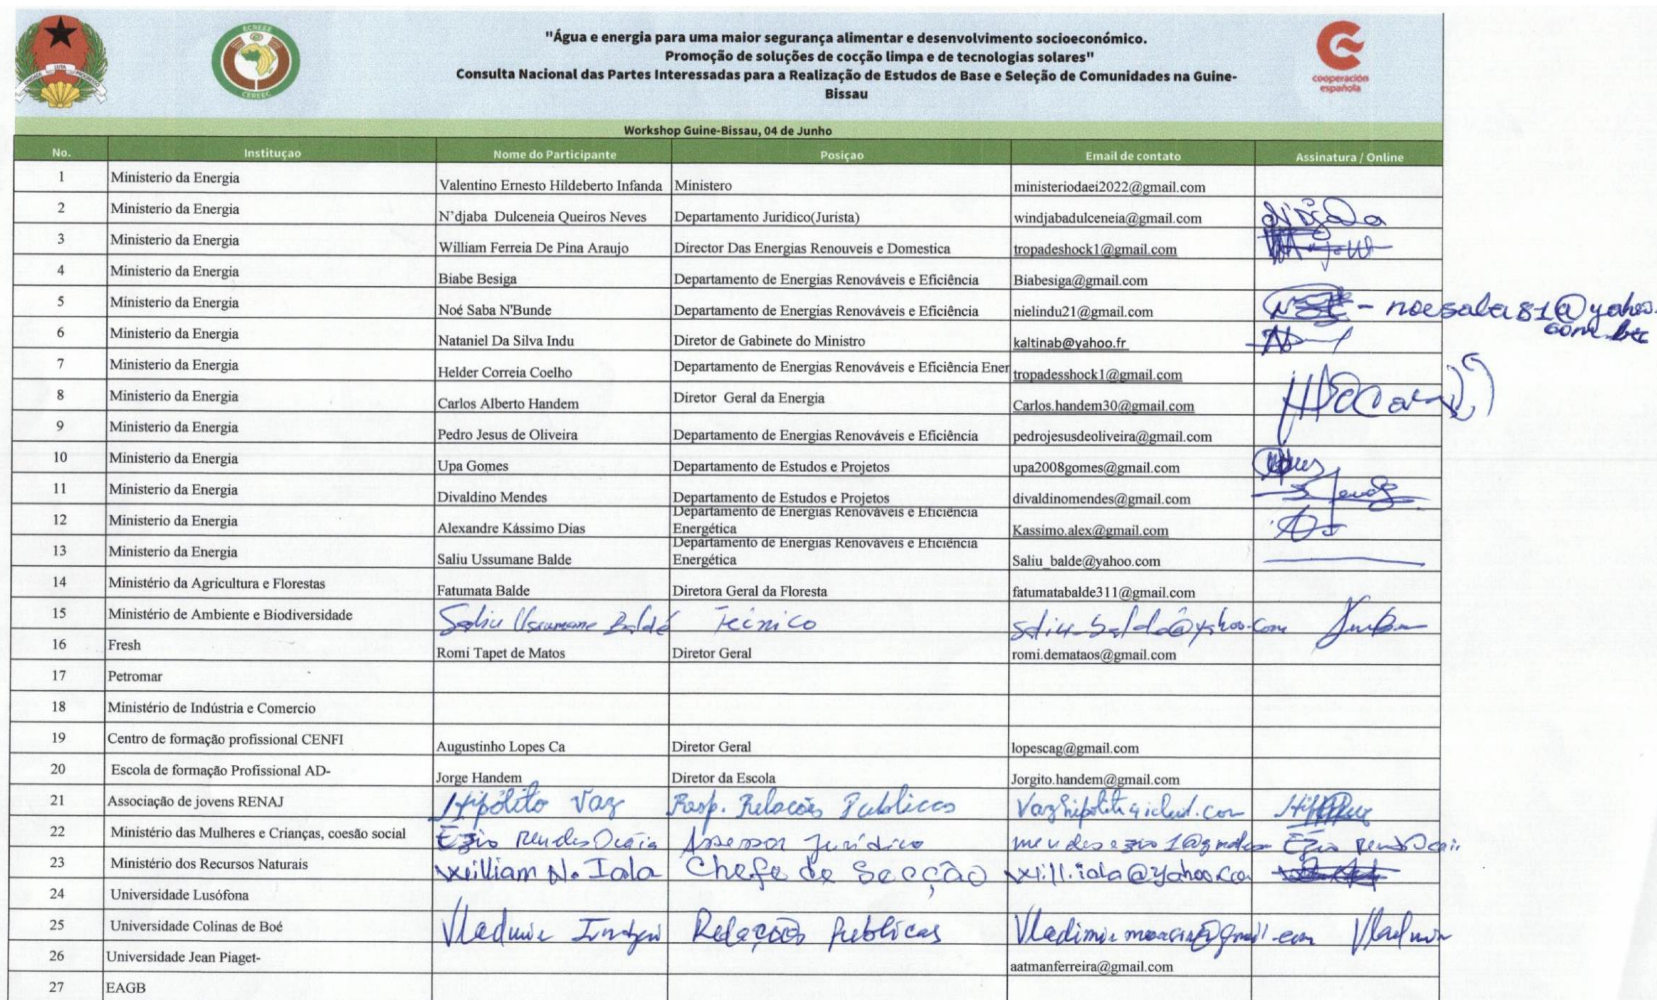 "Água e energia para uma maior segurança alimentar e desenvolvimento socioeconómico.
Promoção de soluções de cocção limpa e de tecnologias solares"
Consulta Nacional das Partes Interessadas para a Realização de Estudos de Base e Seleção de Comunidades na Guine-
Bissau
cooperación
española
Workshop Guine-Bissau, 04 de Junho
No. Instituçao Nome do Participante Posiçao Email de contato Assinatura / Online
1 Ministerio da Energia Valentino Ernesto Hildeberto Infanda Ministero ministeriodaei2022@gmail.com
2 Ministerio da Energia N'djaba Dulceneia Queiros Neves Departamento Juridico(Jurista) windjabadulceneia@gmail.com
3 Ministerio da Energia William Ferreia De Pina Araujo Director Das Energias Renouveis e Domestica tropadeshock1@gmail.com
4 Ministerio da Energia Biabe Besiga Departamento de Energias Renováveis e Eficiência Biabesiga@gmail.com
5 Ministerio da Energia Noé Saba N'Bunde Departamento de Energias Renováveis e Eficiência nielindu21@gmail.com - noesaba81@yahoo.
com.br
6 Ministerio da Energia Nataniel Da Silva Indu Diretor de Gabinete do Ministro kaltinab@yahoo.fr
7 Ministerio da Energia Helder Correia Coelho Departamento de Energias Renováveis e Eficiência Ener tropadesshock1@gmail.com
8 Ministerio da Energia Carlos Alberto Handem Diretor Geral da Energia Carlos.handem30@gmail.com
9 Ministerio da Energia Pedro Jesus de Oliveira Departamento de Energias Renováveis e Eficiência pedrojesusdeoliveira@gmail.com
10 Ministerio da Energia Upa Gomes Departamento de Estudos e Projetos upa2008gomes@gmail.com
11 Ministerio da Energia Divaldino Mendes Departamento de Estudos e Projetos divaldinomendes@gmail.com
12 Ministerio da Energia Alexandre Kássimo Dias Departamento de Energias Renováveis e Eficiência
Energética Kassimo.alex@gmail.com
13 Ministerio da Energia Saliu Ussumane Balde Departamento de Energias Renováveis e Eficiência
Energética Saliu_balde@yahoo.com
14 Ministério da Agricultura e Florestas Fatumata Balde Diretora Geral da Floresta fatumatabalde311@gmail.com
15 Ministério de Ambiente e Biodiversidade Saliu Ussumane Baldé Técnico saliu_balde@yahoo.com
16 Fresh Romi Tapet de Matos Diretor Geral romi.demataos@gmail.com
17 Petromar
18 Ministério de Indústria e Comercio
19 Centro de formação profissional CENFI Augustinho Lopes Ca Diretor Geral lopescag@gmail.com
20 Escola de formação Profissional AD- Jorge Handem Diretor da Escola Jorgito.handem@gmail.com
21 Associação de jovens RENAJ Hipólito Vaz Resp. Relações Publicas
22 Ministério das Mulheres e Crianças, coesão social Ézio Mendes Assessor Jurídico
23 Ministério dos Recursos Naturais William N. Iala Chefe de Secção will.iala@yahoo.com
24 Universidade Lusófona
25 Universidade Colinas de Boé Vladimir Relações Publicas Vladimir
26 Universidade Jean Piaget- aatmanferreira@gmail.com
27 EAGB